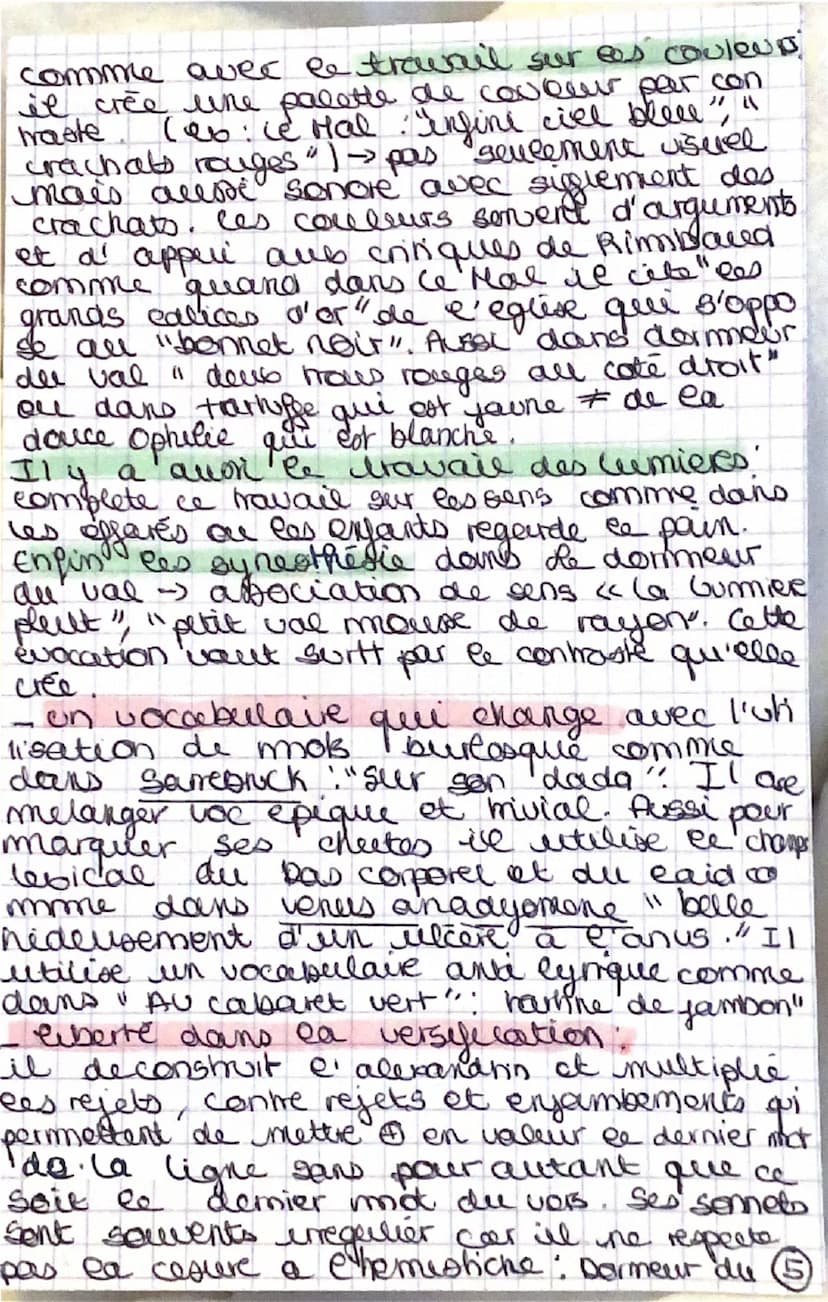 comme avec le travail sur les couleurs
il crée une palette de couleur par con
traste. (ex : Le Mal : "infini ciel bleu", "
crachats rouges") → pas seulement visuel
mais aussi sonore avec sifflement des
crachats. Les couleurs servent d'arguments
et d'appui aux critiques de Rimbaud
comme quand dans Le Mal il cite "les
grands calices d'or" de l'eglise qui s'oppo
se au "bonnet noir". Aussi dans dormeur
du val "deux trous rouges au coté droit"
ou dans tartuffe qui est jaune ≠ de la
douce Ophélie qui est blanche.
Il y a aussi le travail des lumieres :
complete ce travail sur les sens comme dans
les effarés ou les enfants regarde le pain.
Enfin les synesthésie dans le dormeur
du val → association de sens « la lumiere
pleut", "petit val mousse de rayon". Cette
évocation vaut surtt par le contraste qu'elle
crée.
- un vocabulaire qui change avec l'uti
lisation de mots burlesque comme
dans Sarrebruck : "sur son dada". Il ose
melanger voc epique et trivial. Aussi pour
marquer ses il utilise le champs
lexical du bas corporel et du laid co
mme dans venus anadyomene "belle
hideusement d'un ulcère à l'anus." Il
utilise un vocabulaire anti lyrique comme
dans "Au cabaret vert" : tartine de jambon"
- liberté dans la versification :
il deconstruit l'alexandrin et multiplie
les rejets, contre rejets et enjambements qi
permettent de mettre ⊕ en valeur le dernier mot
de la ligne sans pour autant que ce
soit le dernier mot du vers. Ses sonnets
sont souvents irregulier car il ne respecte
pas la cesure a l'hemistiche : Dormeur du ⑤